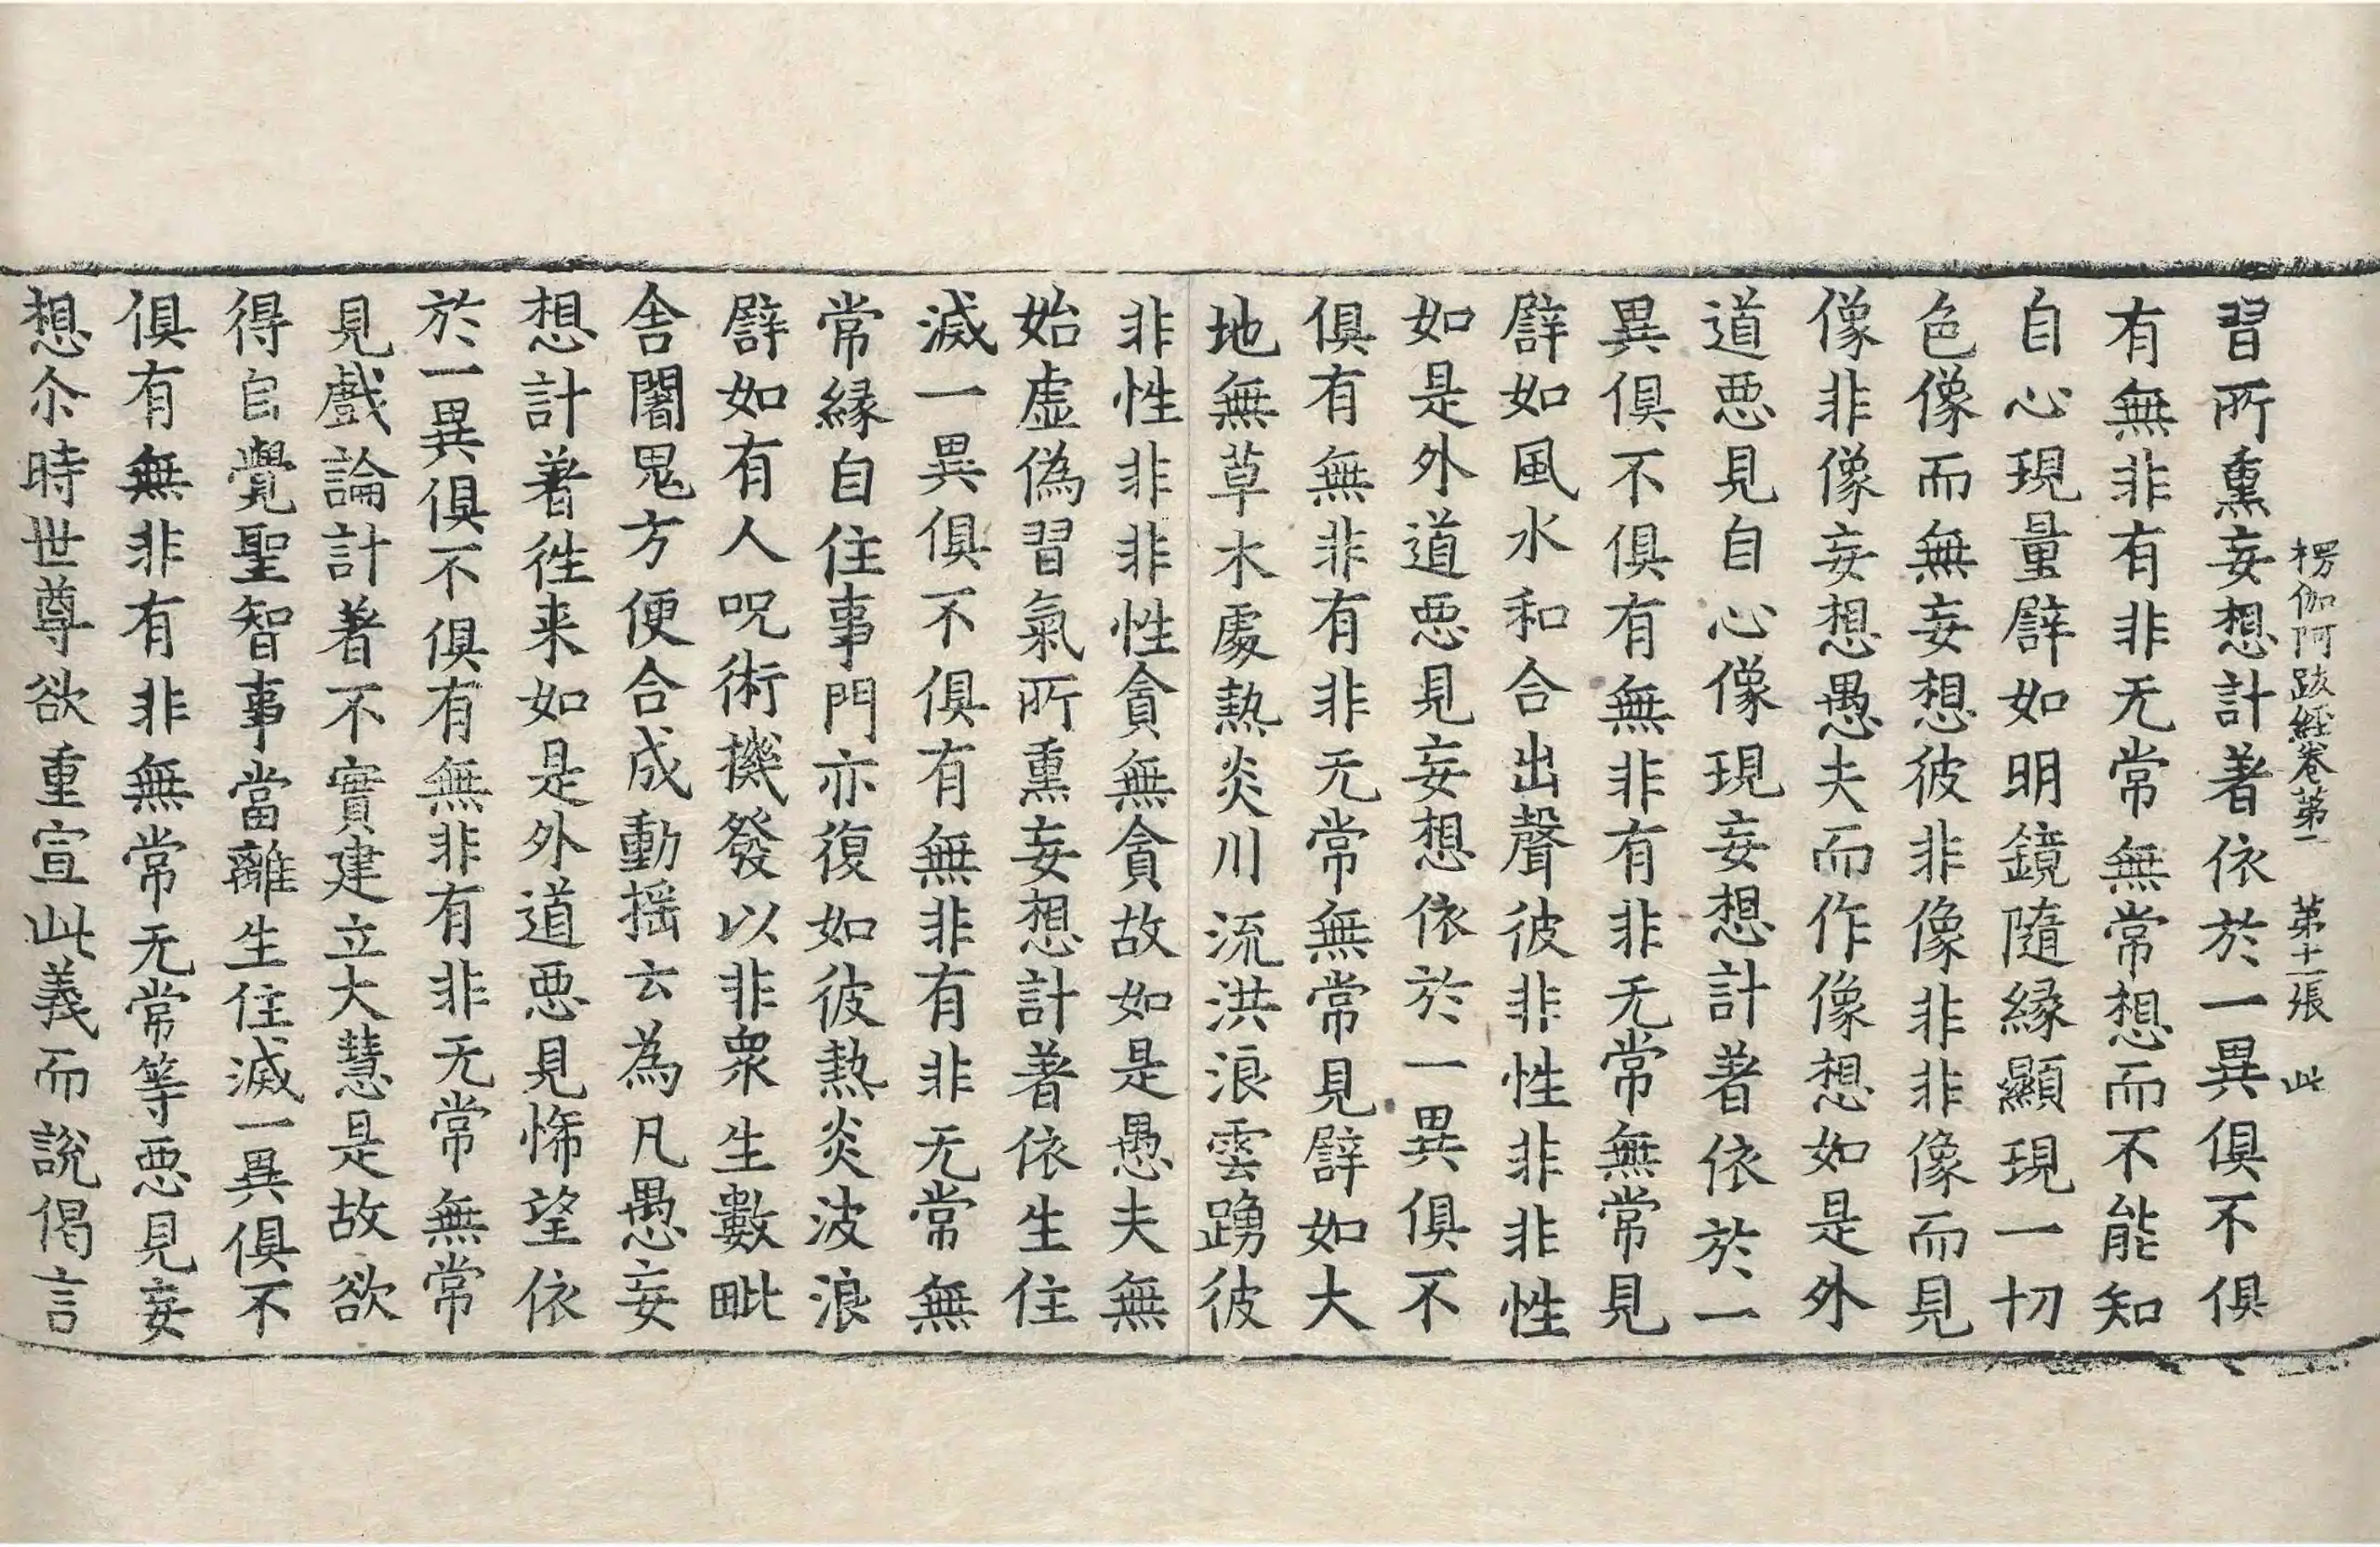 楞伽阿跋經卷第二　第十二張　此
習所熏妄想計著依於一異俱不俱
有無非有非无常無常想而不能知
自心現量譬如明鏡隨緣顯現一切
色像而無妄想彼非像非非像而見
像非像妄想愚夫而作像想如是外
道悪見自心像現妄想計著依於一
異俱不俱有無非有非无常無常見
譬如風水和合出聲彼非性非非性
如是外道悪見妄想依於一異俱不
俱有無非有非无常無常見譬如大
地無草木處熱炎川流洪浪雲踴彼
非性非非性貪無貪故如是愚夫無
始虛偽習氣所熏妄想計著依生住
滅一異俱不俱有無非有非无常無
常緣自住事門亦復如彼熱炎波浪
譬如有人呪術機發以非衆生數毗
舍闍鬼方便合成動搖云為凡愚妄
想計著徃来如是外道悪見悕望依
於一異俱不俱有無非有非无常無常
見戲論計著不實建立大慧是故欲
得自覺聖智事當離生住滅一異俱不
俱有無非有非無常无常等悪見妄
想尒時世尊欲重宣此義而說偈言